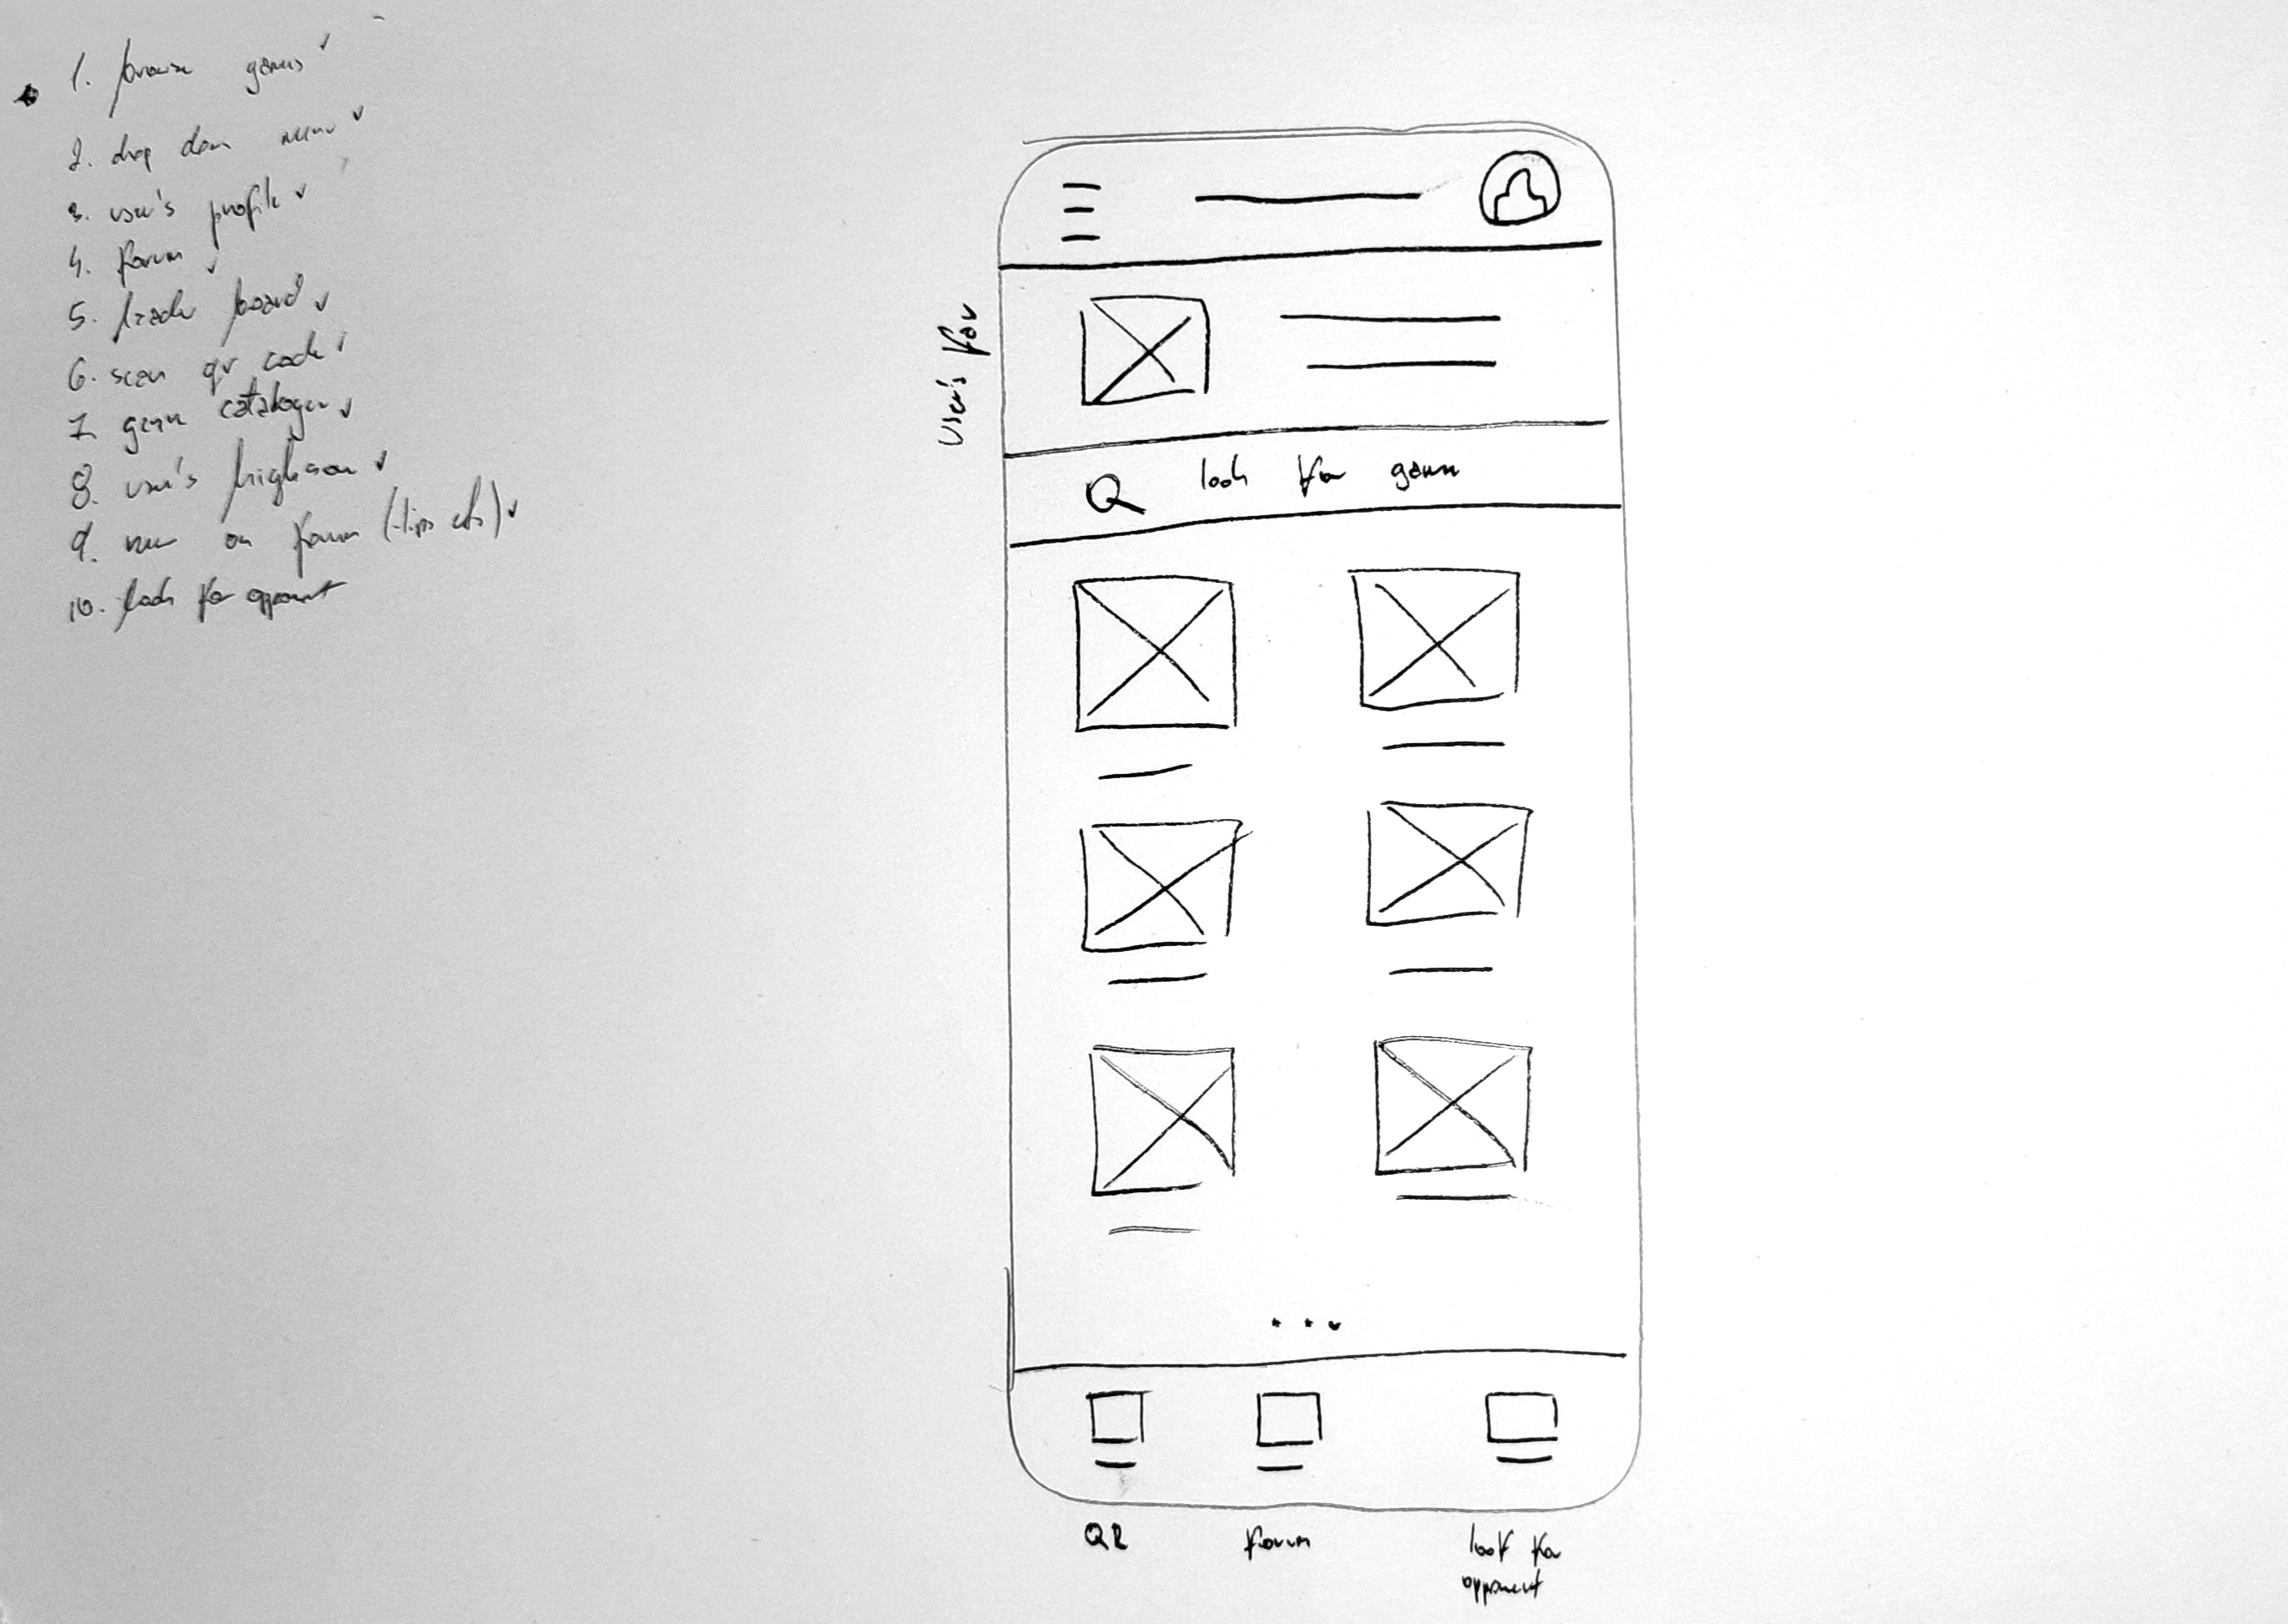 1. browse games
2. drop down menu
3. user's profile
4. forum
5. leader board
6. scan qr code
7. game catalogue
8. user's highscore
9. new on forum (tips etc)
10. look for opponent
User's fav
look for game
QR
forum
look for
opponent